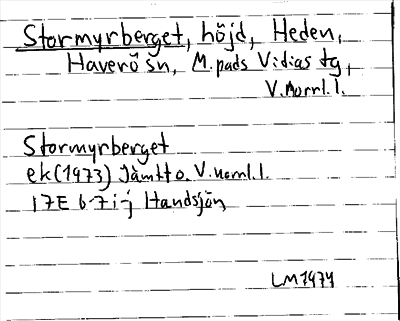 Stormyrberget, höjd, Heden,
Haverö sn, M.pads Vidias tg,
V.norrl.l.
Stormyrberget
ek (1973) Jämtl o. V.norrl.l.
17E 6-7 i-j Handsjön
LM 1974